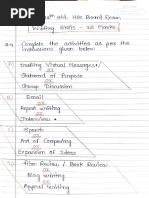 12th std. HSC Board Exam
Writing Skills - 20 Marks
Q.4 Complete the activities as per the
instructions given below
A) Drafting Virtual Messages
OR
Statement of Purpose
OR
Group Discussion
B) Email
OR
Report Writing
OR
Interview
C) Speech
OR
Art of Compering
OR
Expansion of Ideas
D) Film Review / Book Review
OR
Blog Writing
OR
Appeal Writing